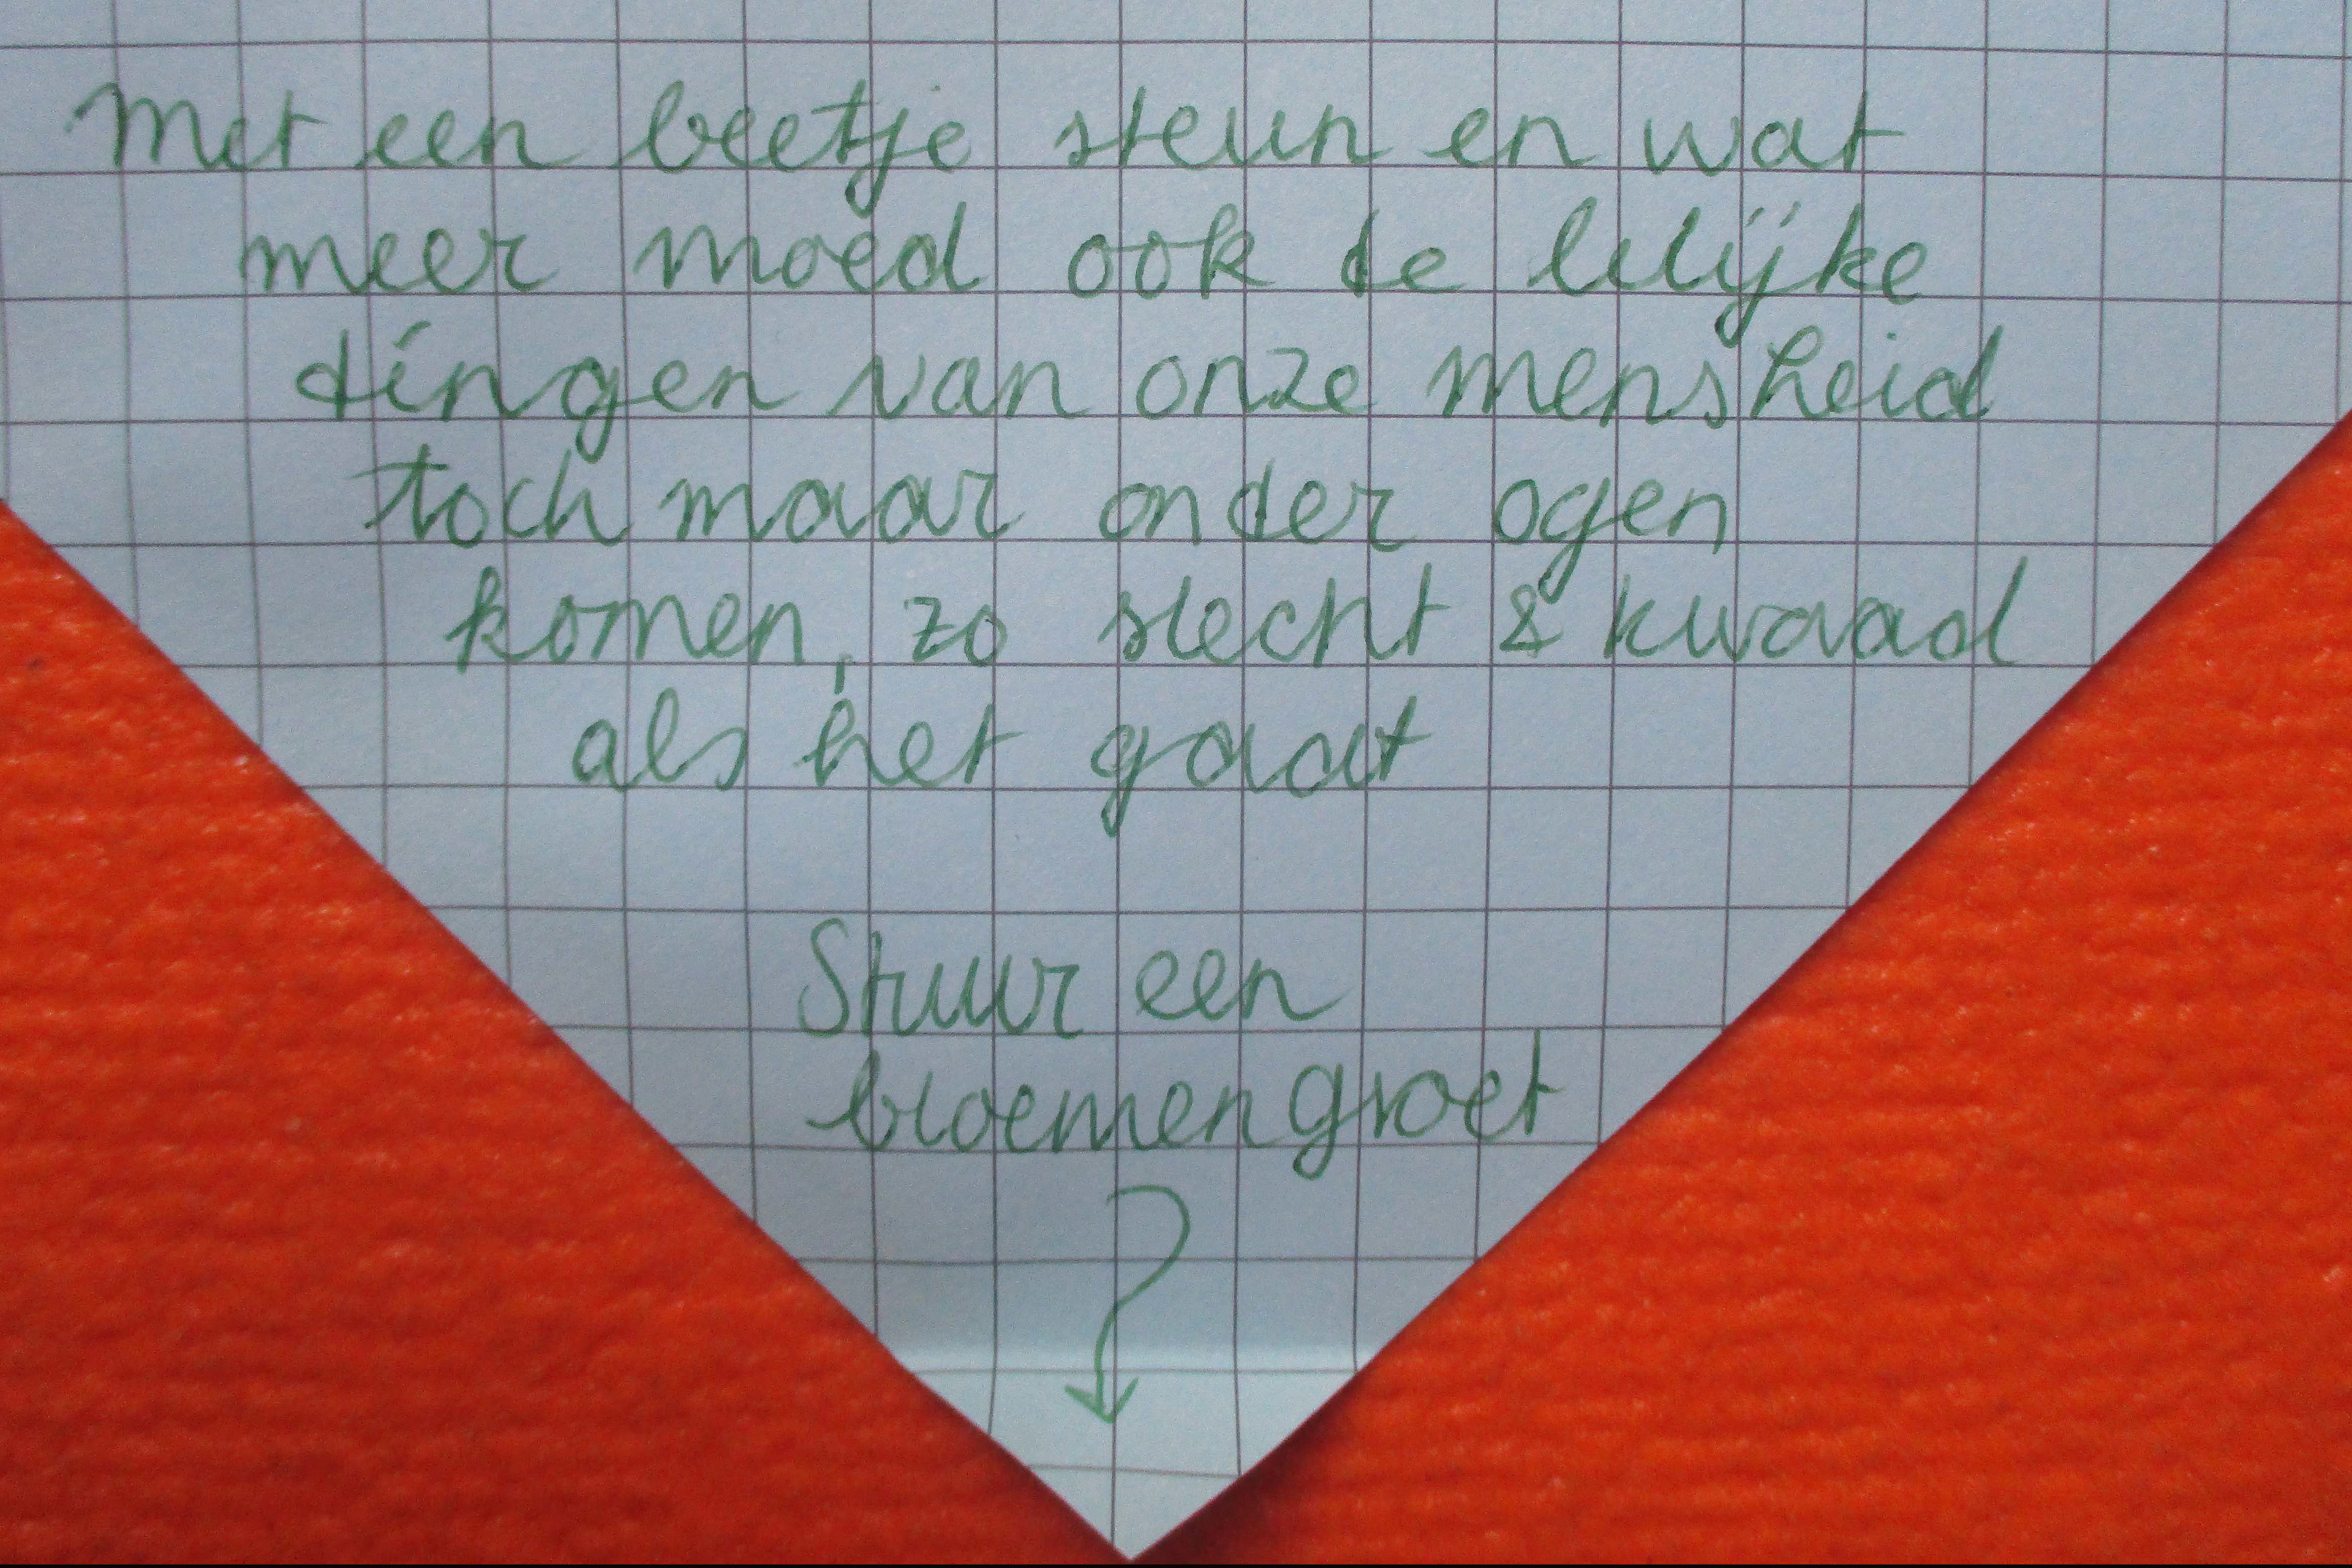 Met een beetje steun en wat
meer moed ook de lelijke
dingen van onze mensheid
toch maar onder ogen
komen, zo slecht & kwaad
als het gaat
Stuur een
bloemengroet